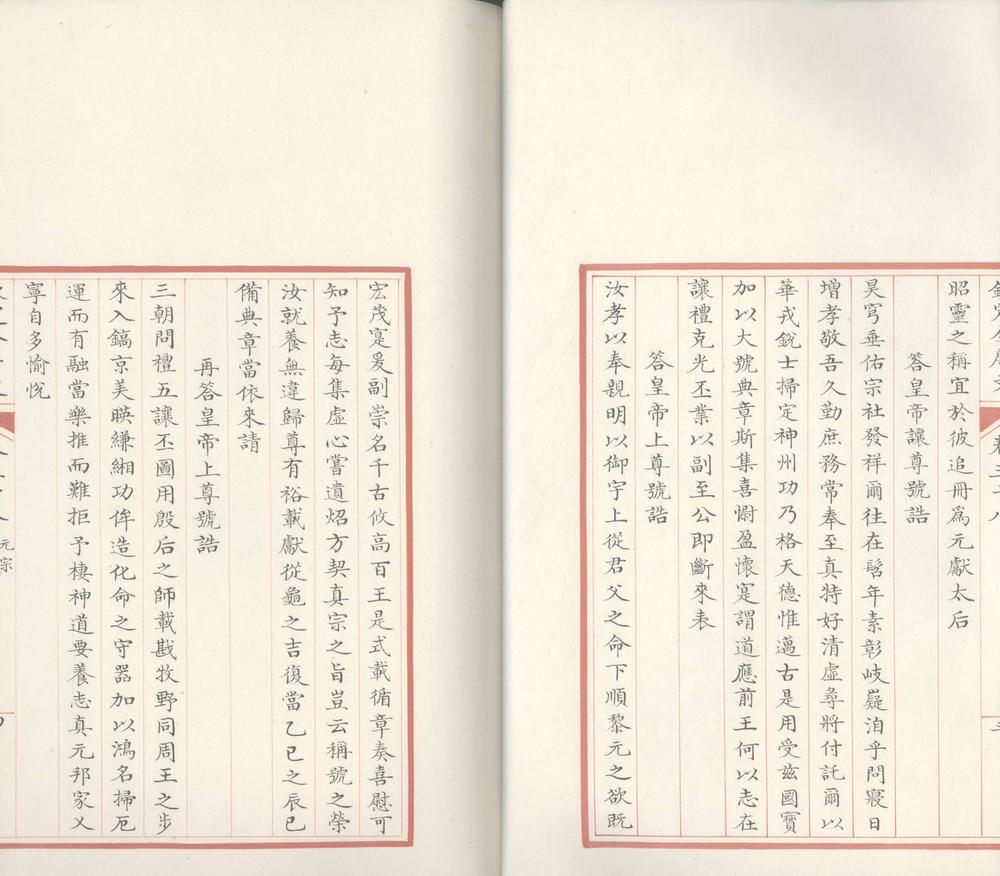 昭靈之稱宜於彼追冊爲元獻太后
答皇帝讓尊號誥
昊穹垂佑宗社發祥爾往在髫年素彰岐嶷洎乎問寢日
增孝敬吾久勤庶務常奉至真特好清虛尋將付託爾以
華戎銳士掃定神州功乃格天德惟邁古是用受茲國寶
加以大號典章斯集喜慰盈懷寔謂道應前王何以志在
讓禮克光丕業以副至公即斷來表
答皇帝上尊號誥
汝孝以奉親明以御宇上從君父之命下順黎元之欲既
宏茂寔爰副崇名千古攸高百王是式載循章奏喜慰可
知予志每集虛心嘗遺炤方契真宗之旨豈云稱號之榮
汝就養無違歸尊有裕載獻從龜之吉復當乙巳之辰已
備典章當依來請
再答皇帝上尊號誥
三朝問禮五讓丕圖用殷后之師載戡牧野同周王之步
來入鎬京美暎縑緗功侔造化命之守器加以鴻名掃厄
運而有融當樂推而難拒予棲神道要養志真元邦家乂
寧自多愉悅
元宗